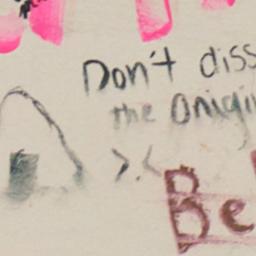 Don't diss
the Origi
>.<
Be